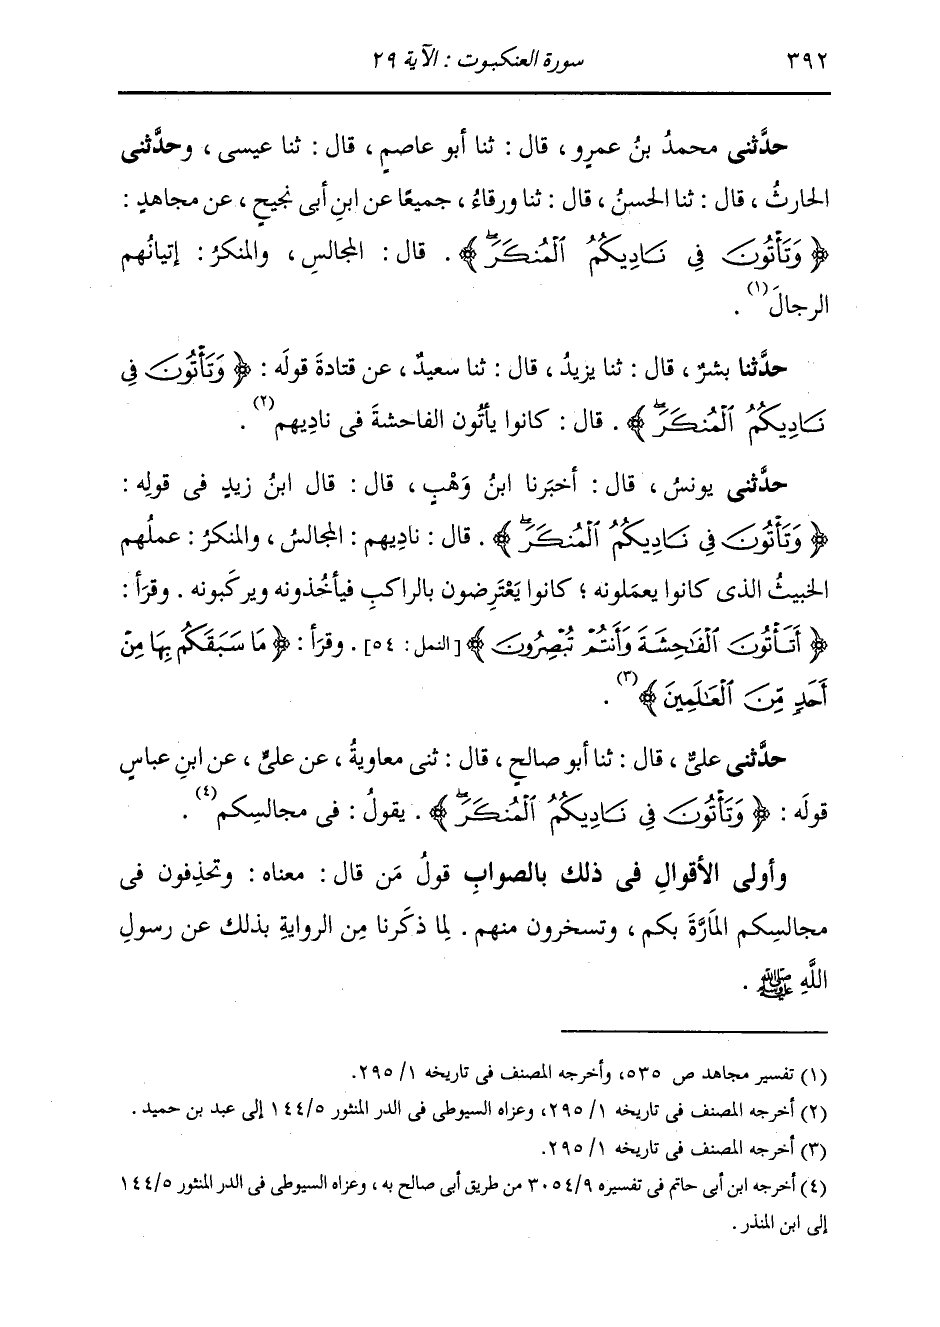 ٣٩٢ سورة العنكبوت : الآية ٢٩
حدَّثنى محمدُ بنُ عمرٍو ، قال : ثنا أبو عاصمٍ ، قال : ثنا عيسى ، وحدَّثنى
الحارثُ ، قال : ثنا الحسنُ ، قال : ثنا ورقاءُ ، جميعًا عن ابنِ أبى نجيحٍ ، عن مجاهدٍ :
﴿ وَتَأْتُونَ فِى نَادِيكُمُ ٱلْمُنكَرَۖ ﴾ . قال : المجالسِ ، والمنكرُ : إتيانُهم
الرجالَ (١) .
حدَّثنا بشرٌ ، قال : ثنا يزيدُ ، قال : ثنا سعيدٌ ، عن قتادةَ قولَه : ﴿ وَتَأْتُونَ فِى
نَادِيكُمُ ٱلْمُنكَرَۖ ﴾ . قال : كانوا يأتُون الفاحشةَ فى نادِيهم (٢) .
حدَّثنى يونسُ ، قال : أخبَرنا ابنُ وَهْبٍ ، قال : قال ابنُ زيدٍ فى قولِه :
﴿ وَتَأْتُونَ فِى نَادِيكُمُ ٱلْمُنكَرَۖ ﴾ . قال : نادِيهم : المجالسُ ، والمنكرُ : عملُهم
الخبيثُ الذى كانوا يعمَلونه ؛ كانوا يَعْتَرِضون بالراكبِ فيأخُذونه ويركَبونه . وقرَأ :
﴿ أَتَأْتُونَ ٱلْفَٰحِشَةَ وَأَنتُمْ تُبْصِرُونَ ﴾ [النمل : ٥٤] . وقرَأ : ﴿ مَا سَبَقَكُم بِهَا مِنْ
أَحَدٍ مِّنَ ٱلْعَٰلَمِينَ ﴾ (٣) .
حدَّثنى علىٌّ ، قال : ثنا أبو صالحٍ ، قال : ثنى معاويةُ ، عن علىٍّ ، عن ابنِ عباسٍ
قولَه : ﴿ وَتَأْتُونَ فِى نَادِيكُمُ ٱلْمُنكَرَۖ ﴾ . يقولُ : فى مجالسِكم (٤) .
وأولى الأقوالِ فى ذلك بالصوابِ قولُ مَن قال : معناه : وتحذِفون فى
مجالسِكم المارَّةَ بكم ، وتسخرون منهم . لِما ذكَرنا مِن الروايةِ بذلك عن رسولِ
اللَّهِ ﷺ .
(١) تفسير مجاهد ص ٥٣٥، وأخرجه المصنف فى تاريخه ١/ ٢٩٥.
(٢) أخرجه المصنف فى تاريخه ١/ ٢٩٥، وعزاه السيوطى فى الدر المنثور ٥/ ١٤٤ إلى عبد بن حميد .
(٣) أخرجه المصنف فى تاريخه ١/ ٢٩٥.
(٤) أخرجه ابن أبى حاتم فى تفسيره ٩/ ٣٠٥٤ من طريق أبى صالح به ، وعزاه السيوطى فى الدر المنثور ٥/ ١٤٤
إلى ابن المنذر .